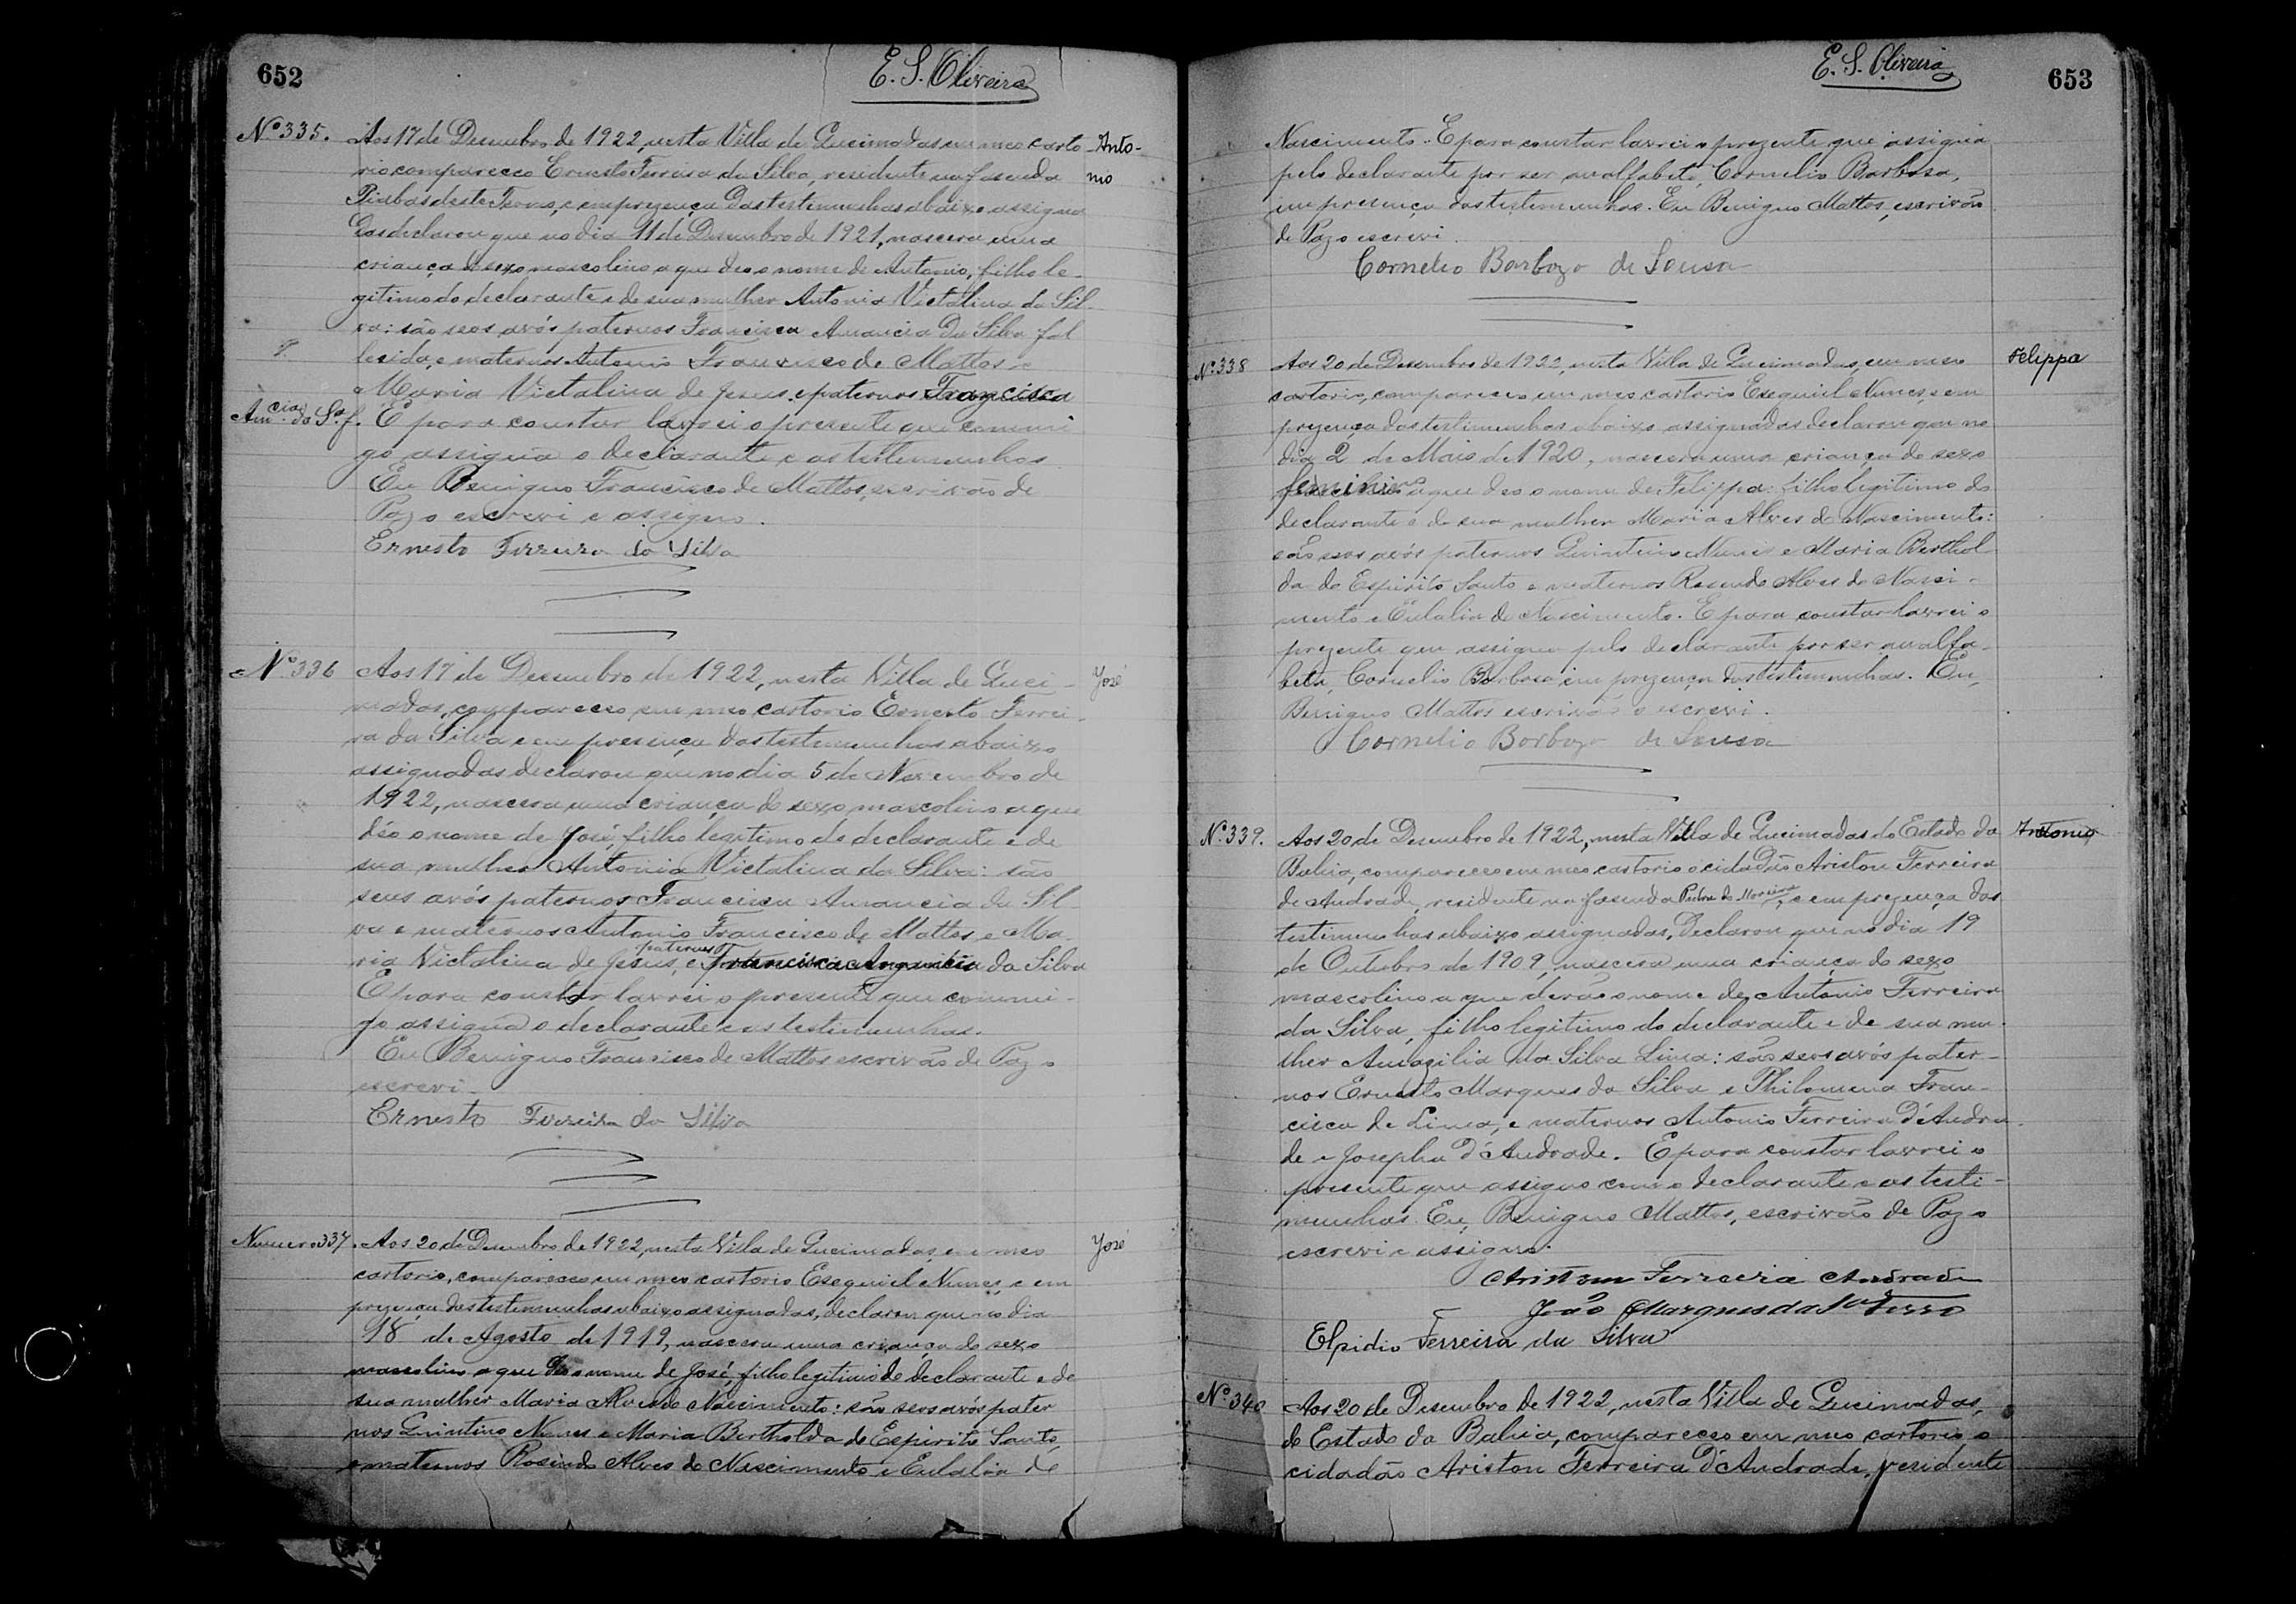 652
E. S. Oliveira
Nº 335. Aos 17 de Desembro de 1922, nesta Villa de Queimadas em meo carto- Anto-
rio compareceo Ernesto Ferreira da Silva, residente na fasenda nio
Piabas deste Termo, e em prezença das testemunhas abaixo assigna
das declarou que no dia 11 de Desembro de 1921, nascera uma
criança do sexo mascolino a que deo o nome de Antonio, filho le-
gitimo do declarante e de sua mulher Antonia Victalina da Sil-
va: são seos avós paternos Francisca Amancia da Silva fal
lesida, e maternos Antonio Francisco de Mattos e
Maria Victalina de Jesus, e paternos Francisca
Am.cia da S.a f. E para constar lavrei o presente que commi
go assigna o declarante e as testemunhas
Eu Benigno Francisco de Mattos, escrivão de
Paz o escrevi e assigno.
Ernesto Ferreira da Silva
Nº 336 Aos 17 de Desembro de 1922, nesta Villa de Quei- José
madas, compareceo em meo cartorio Ernesto Ferrei-
ra da Silva e em presença das testemunhas abaixo
assignadas declarou que no dia 5 de Novembro de
1922, nascera uma criança do sexo mascolino a que
déo o nome de José, filho legitimo do declarante e de
sua mulher Antonia Victalina da Silva: são
seus avós paternos Francisca Amancia da Sil-
va e maternos Antonio Francisco de Mattos e Ma-
ria Victalina de Jesus, e paternos Francisca Amancia da Silva
E para constar lavrei o presente que commi-
go assigna o declarante e as testemunhas.
Eu Benigno Francisco de Mattos escrivão de Paz o
escrevi
Ernesto Ferreira da Silva
Numero 337. Aos 20 de Desembro de 1922, nesta Villa de Queimadas, em meo José
cartorio, compareceo em meo cartorio Esequiel Nunes, e em
prezença das testemunhas abaixo assignadas, declarou que no dia
18 de Agosto de 1919, nascera uma criança do sexo
mascolino a que deo o nome de José, filho legitimo do declarante e de
sua mulher Maria Alves do Nascimento: são seos avós pater
nos Quintino Nunes e Maria Bertholda do Espirito Santo,
e maternos Rosendo Alves do Nascimento e Eulalia do
E. S. Oliveira
653
Nascimento. E para constar lavrei o prezente que assigna
pelo declarante por ser analfabeto, Cornelio Barbosa,
em presença das testemunhas. Eu Benigno Mattos, escrivão
de Paz o escrevi.
Cornelio Barbozo de Sousa
Nº 338 Aos 20 de Desembro de 1922, nesta Villa de Queimadas, em meo Felippa
cartorio, compareceo em meo cartorio Esequiel Nunes, e em
prezença das testemunhas abaixo assignadas declarou que no
dia 2 de Maio de 1920, nascera uma criança do sexo
feminino a que deo o nome de Felippa: filha legitima do
declarante e de sua mulher Maria Alves do Nascimento:
são seos avós paternos Quintino Nunes e Maria Berthol
da do Espirito Santo e maternos Rosendo Alves do Nasci-
mento e Eulalia do Nascimento. E para constar lavrei o
prezente que assigna pelo declarante por ser analfa-
beto, Cornelio Barbosa em prezença das testemunhas. Eu,
Benigno Mattos escrivão o escrevi.
Cornelio Barbozo de Sousa
Nº 339. Aos 20 de Desembro de 1922, nesta Villa de Queimadas do Estado da Antonio
Bahia, compareceo em meo cartorio o cidadão Ariston Ferreira
de Andrade, residente na fasenda Pedra do Moreira, e em prezença das
testemunhas abaixo assignadas, Declarou que no dia 19
de Outubro de 1909, nascera uma criança do sexo
mascolino a que derão o nome de Antonio Ferreira
da Silva, filho legitimo do declarante e de sua mu-
lher Amazilia da Silva Lima: são seos avós pater-
nos Ernesto Marques da Silva e Philomena Fran-
cisca de Lima, e maternos Antonio Ferreira d'Andra-
de e Josepha d'Andrade. E para constar lavrei o
presente que assigno com o declarante e as teste-
munhas. Eu, Benigno Mattos, escrivão de Paz o
escrevi e assigno.
Ariston Ferreira Andrade
João Marques da
Elpidio Ferreira da Silva
Nº 340 Aos 20 de Desembro de 1922, nesta Villa de Queimadas,
do Estado da Bahia, compareceo em meo cartorio, o
cidadão Ariston Ferreira d'Andrade, residente